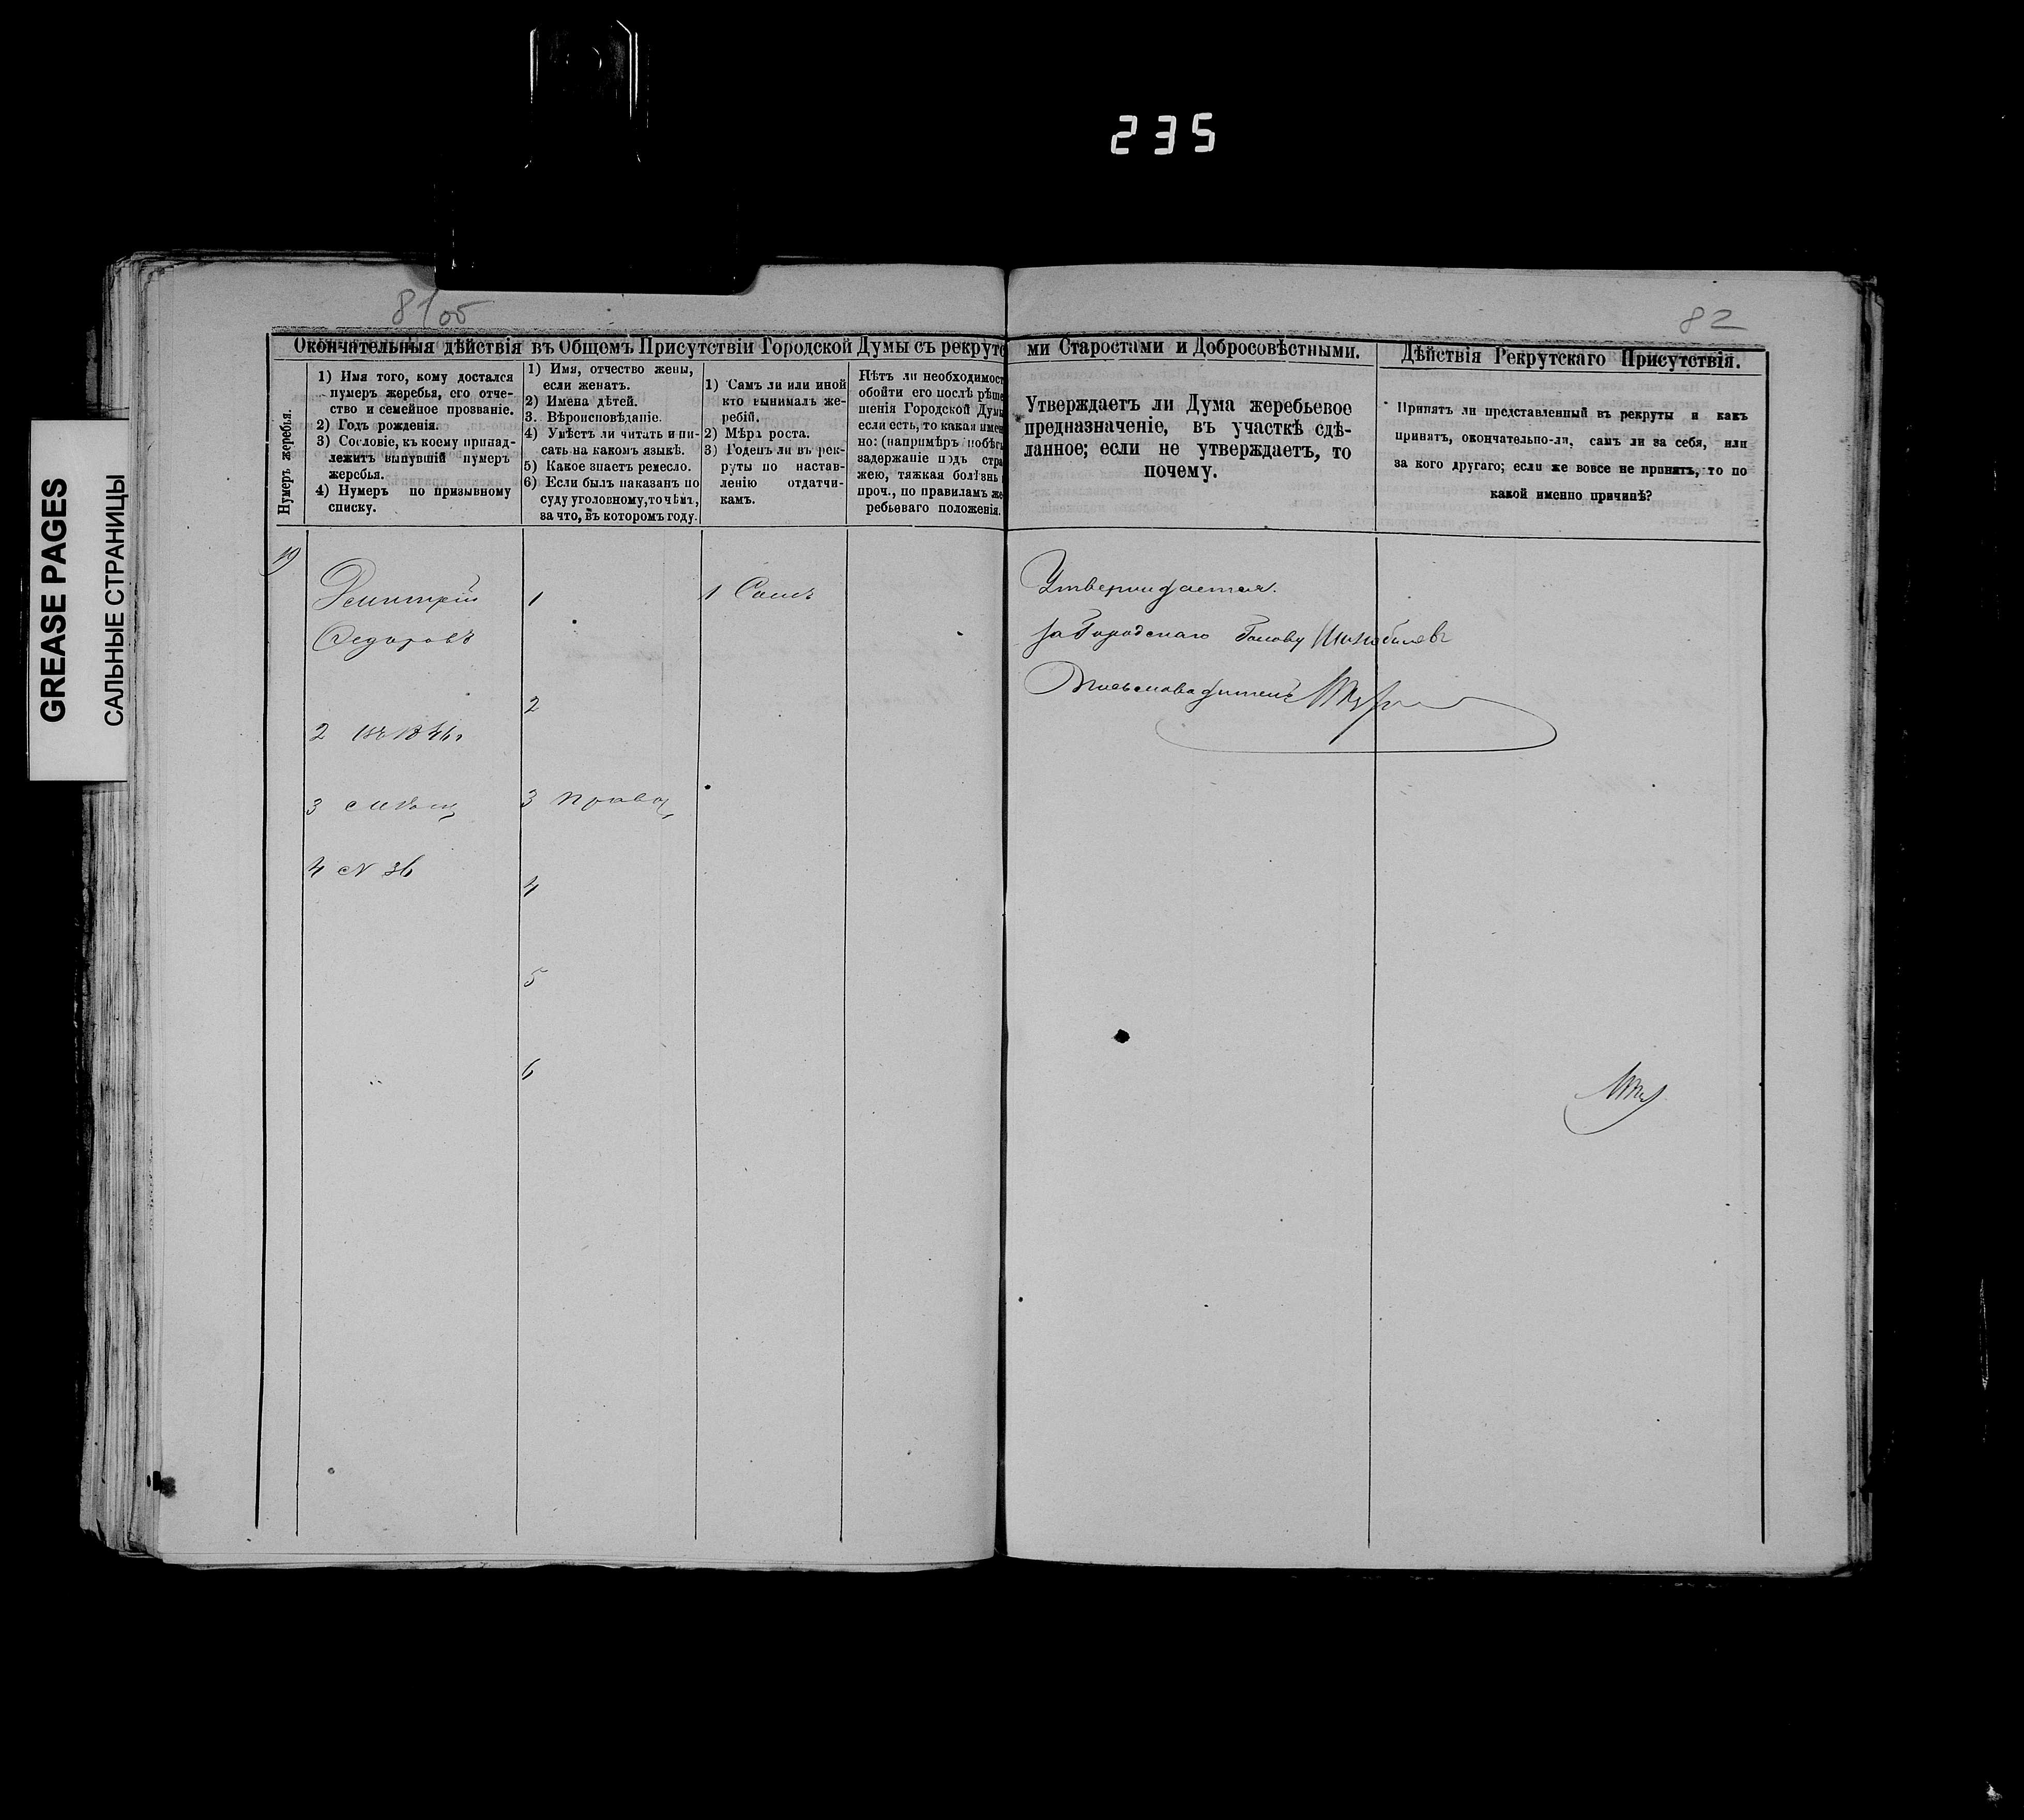 235
GREASE PAGES
САЛЬНЫЕ СТРАНИЦЫ
81 об
82
Окончательныя дѣйствія въ Общемъ Присутствіи Городской Думы съ рекрутс
ми Старостами и Добросовѣстными.
Дѣйствія Рекрутскаго Присутствія.
Нумеръ жеребья.
1) Имя того, кому достался
нумеръ жеребья, его отче-
ство и семейное прозваніе.
2) Годъ рожденія.
3) Сословіе, къ коему принад-
лежитъ вынувшій нумеръ
жеребья.
4) Нумеръ по призывному
списку.
1) Имя, отчество жены,
если женатъ.
2) Имена дѣтей.
3. Вѣроисповѣданіе.
4) Умѣетъ ли читать и пи-
сать на какомъ языкѣ.
5) Какое знаетъ ремесло.
6) Если былъ наказанъ по
суду уголовному, то чѣмъ,
за что, въ которомъ году.
1) Самъ ли или иной
кто вынималъ же-
ребій.
2) Мѣра роста.
3) Годенъ ли въ рек-
руты по настав-
ленію отдатчи-
камъ.
Нѣтъ ли необходимост
обойти его послѣ рѣше
шенія Городской Думы
если есть, то какая имен
но: (напримѣръ побѣгъ
задержаніе подъ стра
жею, тяжкая болѣзнь
проч., по правиламъ же
ребьеваго положенія.
Утверждаетъ ли Дума жеребьевое
предназначеніе, въ участкѣ сдѣ-
ланное; если не утверждаетъ, то
почему.
Принятъ ли представленный въ рекруты и какъ
принятъ, окончательно-ли, самъ ли за себя, или
за кого другаго; если же вовсе не принятъ, то по
какой именно причинѣ?
19
Дмитрій
Федоровъ
2 въ 1846 г
3 с мѣщ
4 N 36
1
2
3 Правос
4
5
6
1 Самъ
Утверждается.
За Городскаго Голову
Письмоводитель